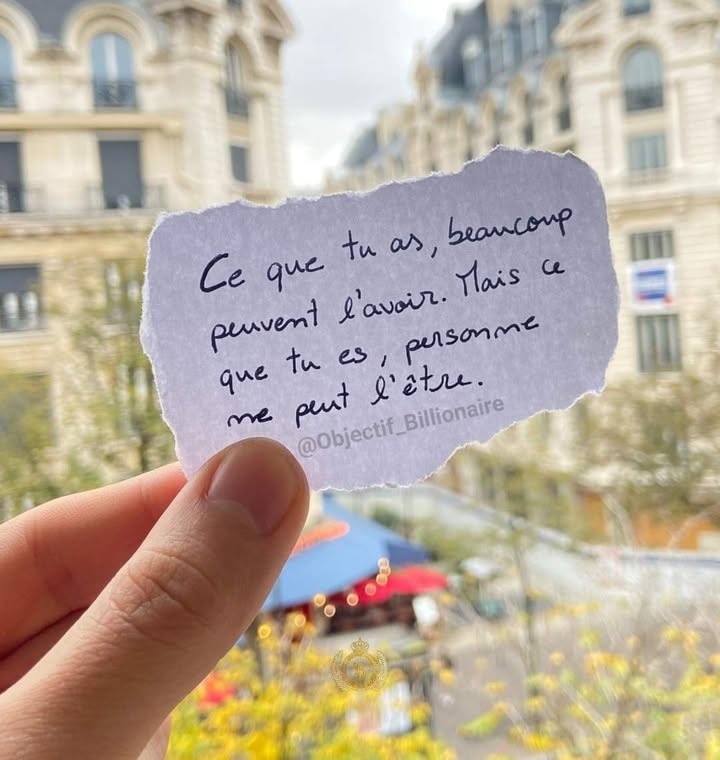 Ce que tu as, beaucoup
peuvent l'avoir. Mais ce
que tu es, personne
ne peut l'être.
@Objectif_Billionaire